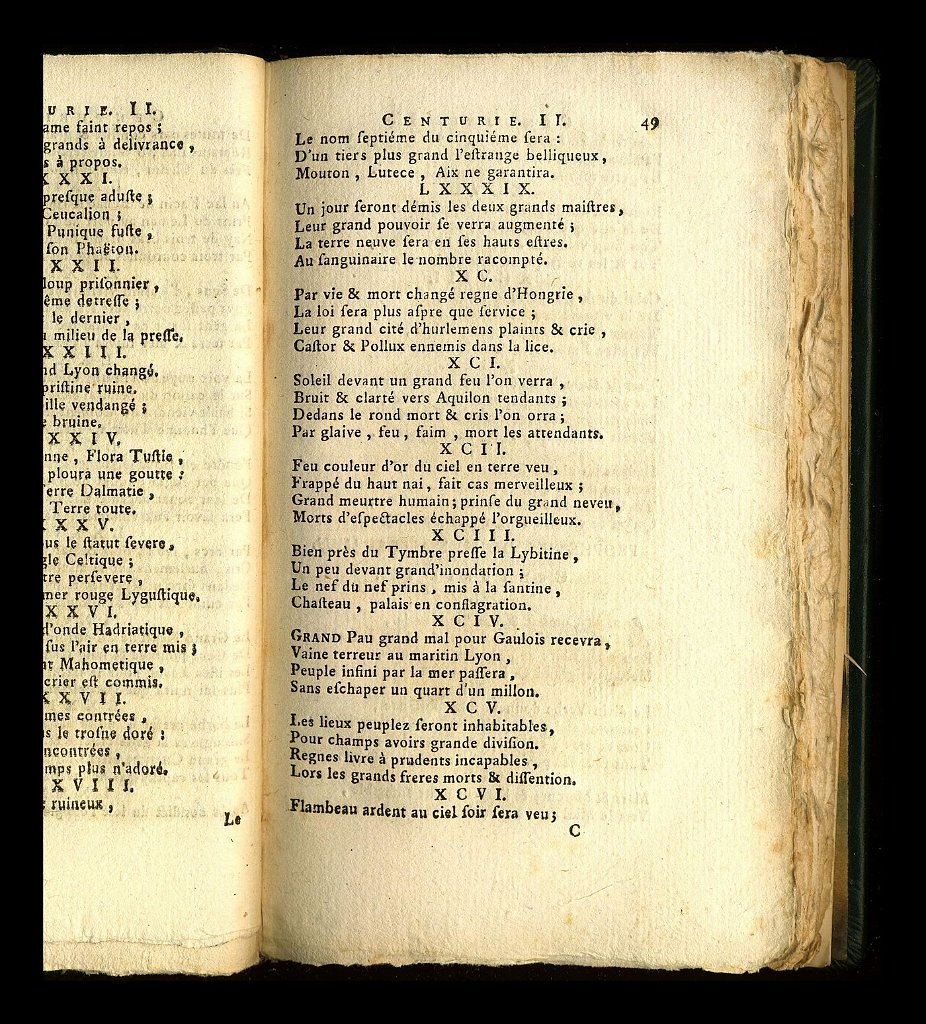 URIE. II.
ame faint repos ;
grands à delivrance ,
s à propos.
XXXI.
preſque aduſte ;
Ceucalion ;
Punique fuſte ,
ſon Phaëton.
XXII.
loup priſonnier ,
ême detreſſe ;
le dernier ,
u milieu de la preſſe.
XXIII.
nd Lyon changé.
priſtine ruine.
ille vendangé ;
e bruine.
XXIV.
nne , Flora Tuſtie ,
ploura une goutte :
Terre Dalmatie ,
Terre toute.
XXXV.
ous le ſtatut ſevere ,
gle Celtique ;
tre perſevere ,
mer rouge Lyguſtique.
XXVI.
d'onde Hadriatique ,
ſus l'air en terre mis ;
nt Mahometique ,
crier eſt commis.
XXVII.
mes contrées ,
s le troſne doré :
ncontrées ,
mps plus n'adoré.
XVIII.
ruineux ,
Le
CENTURIE. II. 49
Le nom ſeptiéme du cinquiéme ſera :
D'un tiers plus grand l'eſtrange belliqueux ,
Mouton , Lutece , Aix ne garantira.
LXXXIX.
Un jour ſeront démis les deux grands maiſtres ,
Leur grand pouvoir ſe verra augmenté ;
La terre neuve ſera en ſes hauts eſtres.
Au ſanguinaire le nombre racompté.
XC.
Par vie & mort changé regne d'Hongrie ,
La loi ſera plus aſpre que ſervice ;
Leur grand cité d'hurlemens plaints & crie ,
Caſtor & Pollux ennemis dans la lice.
XCI.
Soleil devant un grand feu l'on verra ,
Bruit & clarté vers Aquilon tendants ;
Dedans le rond mort & cris l'on orra ;
Par glaive , feu , faim , mort les attendants.
XCII.
Feu couleur d'or du ciel en terre veu ,
Frappé du haut nai , fait cas merveilleux ;
Grand meurtre humain ; prinſe du grand neveu ,
Morts d'eſpectacles échappé l'orgueilleux.
XCIII.
Bien près du Tymbre preſſe la Lybitine ,
Un peu devant grand'inondation ;
Le nef du nef prins , mis à la ſantine ,
Chaſteau , palais en conflagration.
XCIV.
GRAND Pau grand mal pour Gaulois recevra ,
Vaine terreur au maritin Lyon ,
Peuple infini par la mer paſſera ,
Sans eſchaper un quart d'un millon.
XCV.
Les lieux peuplez ſeront inhabitables ,
Pour champs avoirs grande diviſion.
Regnes livre à prudents incapables ,
Lors les grands freres morts & diſſention.
XCVI.
Flambeau ardent au ciel ſoir ſera veu ;
C